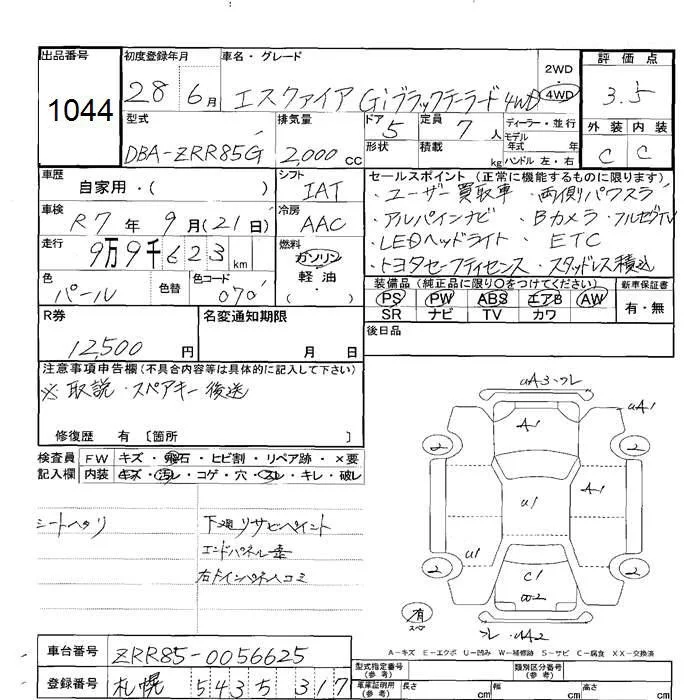 出品番号 初度登録年月 車名・グレード 2WD 評価点
1044 28 6月 エスクァイア Giブラックテーラード 4WD 4WD 3.5
型式 排気量 ドア 5 定員 7 人 ディーラー・並行 外装 内装
DBA-ZRR85G 2,000 cc 形状 積載 kg モデル年式 年式 ハンドル 左・右 C C
車歴 シフト セールスポイント(正常に機能するものに限ります)
自家用・( ) IAT ・ユーザー買取車 ・両側パワスラ
車検 R7年 9月(21日) 冷房 AAC ・アルパインナビ ・Bカメラ・フルセグTV
走行 9万9千623km 燃料 ガソリン ・LEDヘッドライト ・ETC
軽油・( ) ・トヨタセーフティセンス ・スタッドレス積込
色 色替 色コード 装備品(純正品に限り○をつけてください) 新車保証書
パール 070 PS PW ABS エアB AW 有・無
R券 名変通知期限 SR ナビ TV カワ
12,500円 月 日 後日品
注意事項申告欄(不具合内容等は具体的に記入して下さい)
※取説・スペアキー後送
修復歴 有〔箇所 〕
検査員 FW キズ・飛石・ヒビ割・リペア跡・×要
記入欄 内装 キズ・汚レ・コゲ・穴・スレ・キレ・破レ
シートヘタリ 下廻リサビペイント
エンドパネル
右ドインパネ凹コミ
uA3・ワレ
uA1
A1
2 2
u1 A1
u1
2 2
C1
W2
有
スペア
ワレ・uA2
A-キズ E-エクボ U-凹み W-補修跡 S-サビ C-腐食 XX-交換済
車台番号 ZRR85-0056625
登録番号 札幌 543 5 317
型式指定番号(参考) 類別区分番号(参考)
車庫証明用(参考) 長さ cm 幅 cm 高さ cm